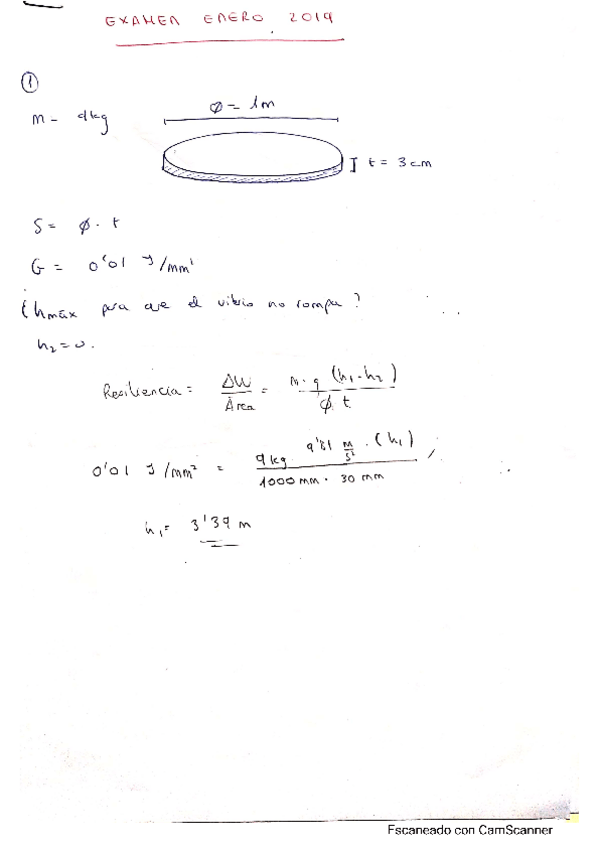 EXAMEN ENERO 2019
①
m = 9kg
φ = 1m
t = 3cm
S = φ · t
G = 0'01 J/mm²
¿hmáx para que el vidrio no rompa?
h₂ = 0.
Resiliencia = ΔW / Área = m · g (h₁ - h₂) / φ · t
0'01 J/mm² = 9kg · 9'81 m/s² · (h₁) / 1000 mm · 30 mm
h₁ = 3'39 m
Escaneado con CamScanner